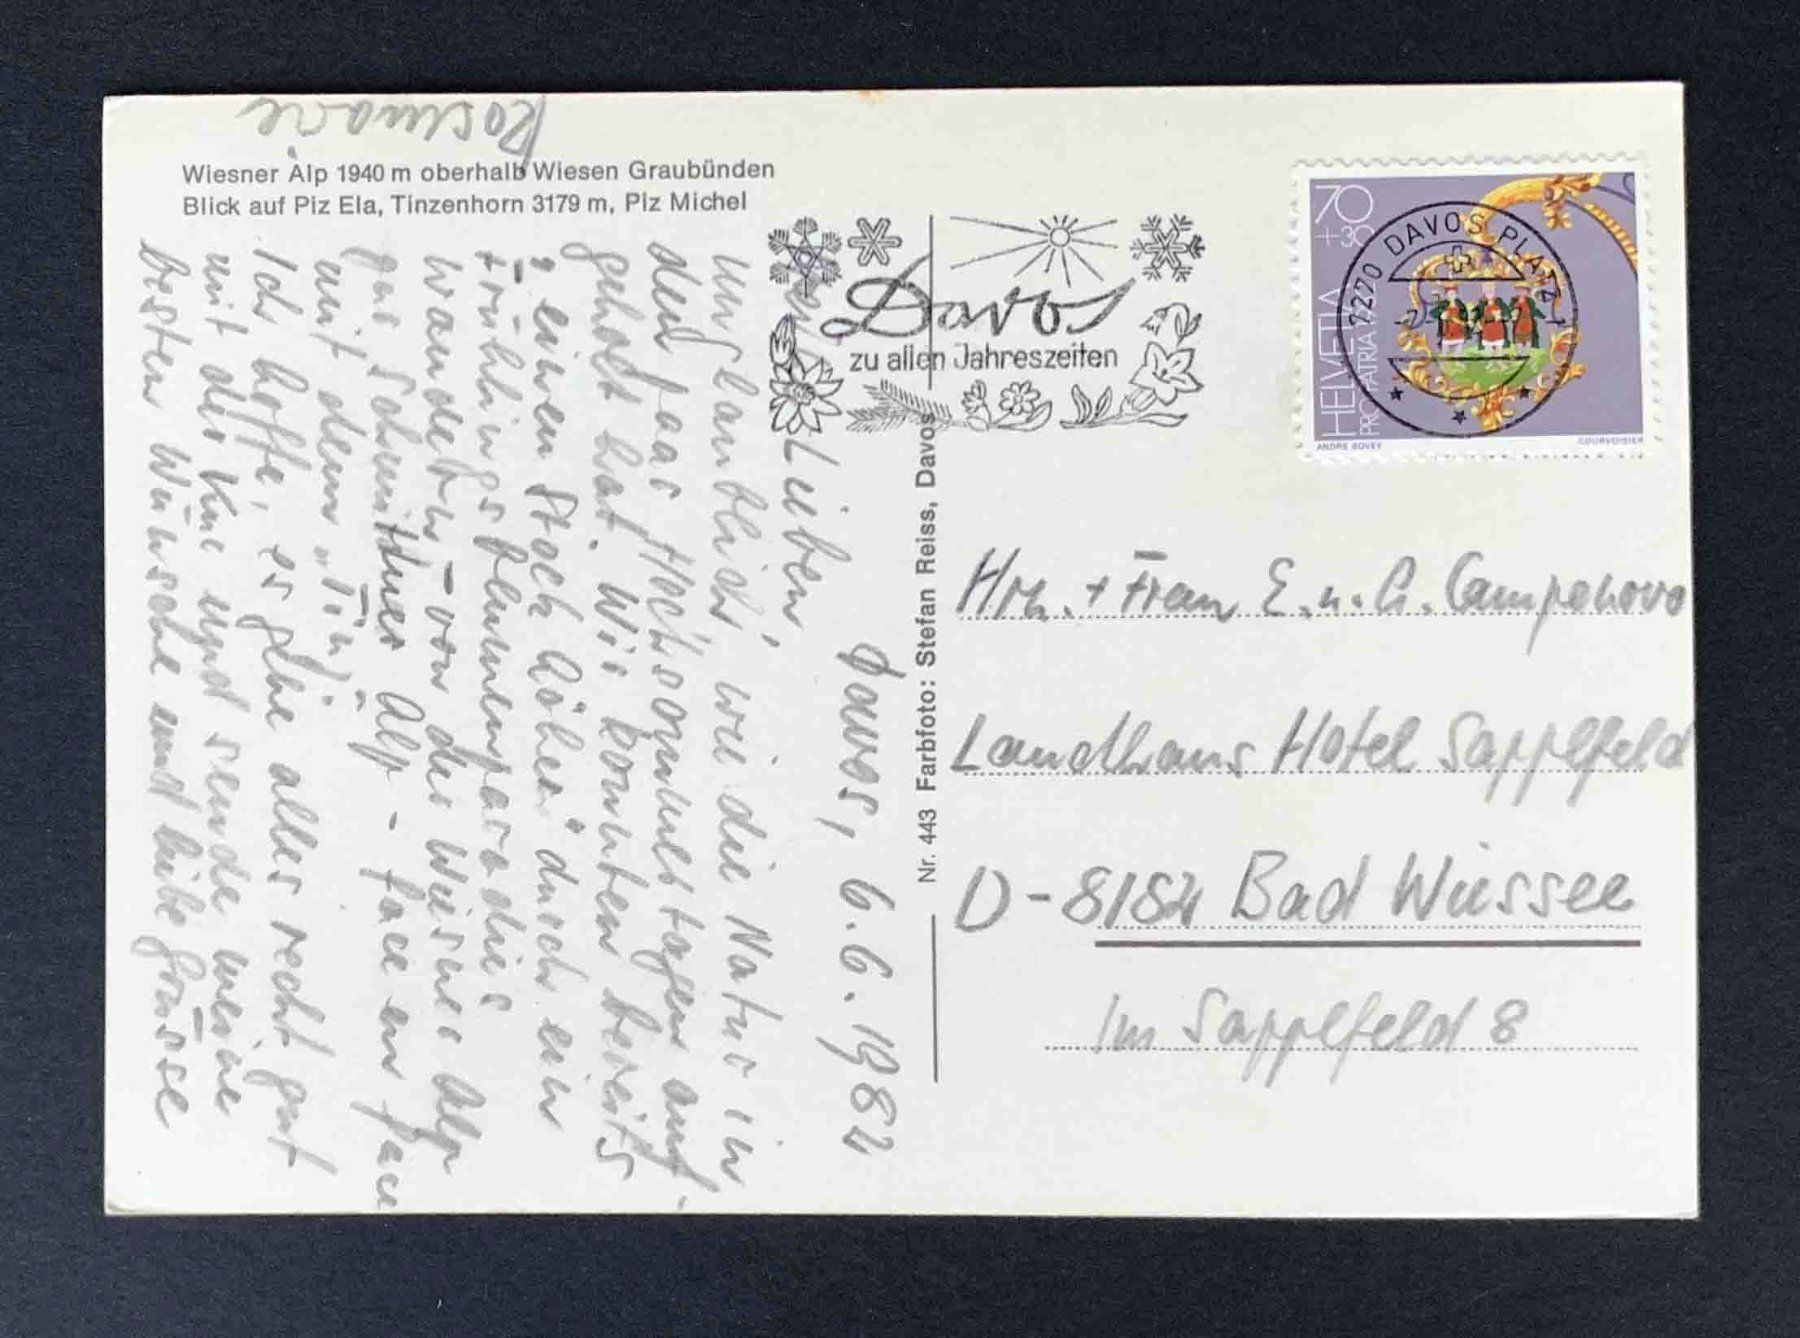 Wiesner Alp 1940 m oberhalb Wiesen Graubünden
Blick auf Piz Ela, Tinzenhorn 3179 m, Piz Michel
Davos
zu allen Jahreszeiten
70
+30
HELVETIA
PRO PATRIA
ANDRE BOVEY
COURVOISIER
7270 DAVOS PLATZ
Nr. 443 Farbfoto: Stefan Reiss, Davos
Davos, 6.6.1982
Lieben,
unglaublich, wie die Natur in
den paar Hochsommertagen auf-
geholt hat. Wir konnten bereits
"einen Stock höher" durch ein
Frühlingsblumenparadies
wandern – von der Wiesner Alp
zur Schmittner Alp – face en face
mit dem "Tin
Ich hoffe, es gehe alles recht gut
mit der Kur und sende meine
besten Wünsche und liebe Grüsse
Rosmarie
Hrn. + Frau E. u. G. Campenovo
Landhaus Hotel Sapplfeld
D-8182 Bad Wiessee
Im Sapplfeld 8